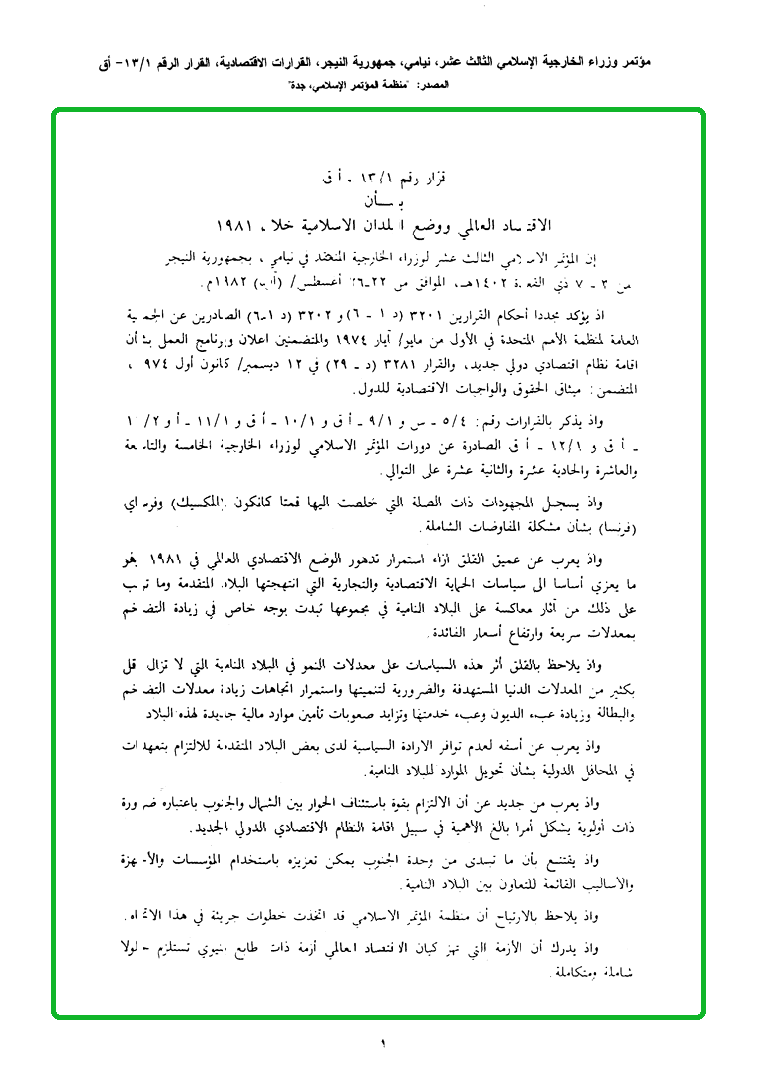 مؤتمر وزراء الخارجية الإسلامي الثالث عشر، نيامي، جمهورية النيجر، القرارات الاقتصادية، القرار الرقم ١٣/١- أق
المصدر: "منظمة المؤتمر الإسلامي، جدة"
قرار رقم ١٣/١ ـ أ ق
بشأن
الاقتصاد العالمي ووضع البلدان الاسلامية خلال ١٩٨١
إن المؤتمر الاسلامي الثالث عشر لوزراء الخارجية المنعقد في نيامي، بجمهورية النيجر
من ٣ - ٧ ذي القعدة ١٤٠٢هـ، الموافق من ٢٢-٢٦ أغسطس/ (آب) ١٩٨٢م.
اذ يؤكد مجددا أحكام القرارين ٣٢٠١ (د ١ - ٦) و ٣٢٠٢ (د ١-٦) الصادرين عن الجمعية
العامة لمنظمة الأمم المتحدة في الأول من مايو/ آيار ١٩٧٤ والمتضمنين اعلان وبرنامج العمل بشأن
اقامة نظام اقتصادي دولي جديد، والقرار ٣٢٨١ (د ـ ٢٩) في ١٢ ديسمبر/ كانون أول ١٩٧٤ ،
المتضمن: ميثاق الحقوق والواجبات الاقتصادية للدول.
واذ يذكر بالقرارات رقم: ٥/٤ ـ س و ٩/١ ـ أ ق و ١٠/١ ـ أ ق و ١١/١ ـ أ و
ـ أ ق و ١٢/١ ـ أ ق الصادرة عن دورات المؤتمر الاسلامي لوزراء الخارجية الخامسة والتاسعة
والعاشرة والحادية عشرة والثانية عشرة على التوالي.
واذ يسجل المجهودات ذات الصلة التي خلصت اليها قمتا كانكون (المكسيك) وفرساي
(فرنسا) بشأن مشكلة المفاوضات الشاملة.
واذ يعرب عن عميق القلق ازاء استمرار تدهور الوضع الاقتصادي العالمي في ١٩٨١ وهو
ما يعزي أساسا الى سياسات الحماية الاقتصادية والتجارية التي انتهجتها البلاد المتقدمة وما ترتب
على ذلك من آثار معاكسة على البلاد النامية في مجموعها تبدت بوجه خاص في زيادة التضخم
بمعدلات سريعة وارتفاع أسعار الفائدة.
واذ يلاحظ بالقلق أثر هذه السياسات على معدلات النمو في البلاد النامية التي لا تزال أقل
بكثير من المعدلات الدنيا المستهدفة والضرورية لتنميتها واستمرار اتجاهات زيادة معدلات التضخم
والبطالة وزيادة عبء الديون وعبء خدمتها وتزايد صعوبات تأمين موارد مالية جديدة لهذه البلاد
واذ يعرب عن أسفه لعدم توافر الارادة السياسية لدى بعض البلاد المتقدمة للالتزام بتعهدات
في المحافل الدولية بشأن تحويل الموارد للبلاد النامية.
واذ يعرب من جديد عن أن الالتزام بقوة باستئناف الحوار بين الشمال والجنوب باعتباره ضرورة
ذات أولوية يشكل أمرا بالغ الأهمية في سبيل اقامة النظام الاقتصادي الدولي الجديد.
واذ يقتنع بأن ما تبدى من وحدة الجنوب يمكن تعزيزه باستخدام المؤسسات والأجهزة
والأساليب القائمة للتعاون بين البلاد النامية.
واذ يلاحظ بالارتياح أن منظمة المؤتمر الاسلامي قد اتخذت خطوات جريئة في هذا الاتجاه.
واذ يدرك أن الأزمة التي تهز كيان الاقتصاد العالمي أزمة ذات طابع بنيوي تستلزم حلولا
شاملة ومتكاملة.
١